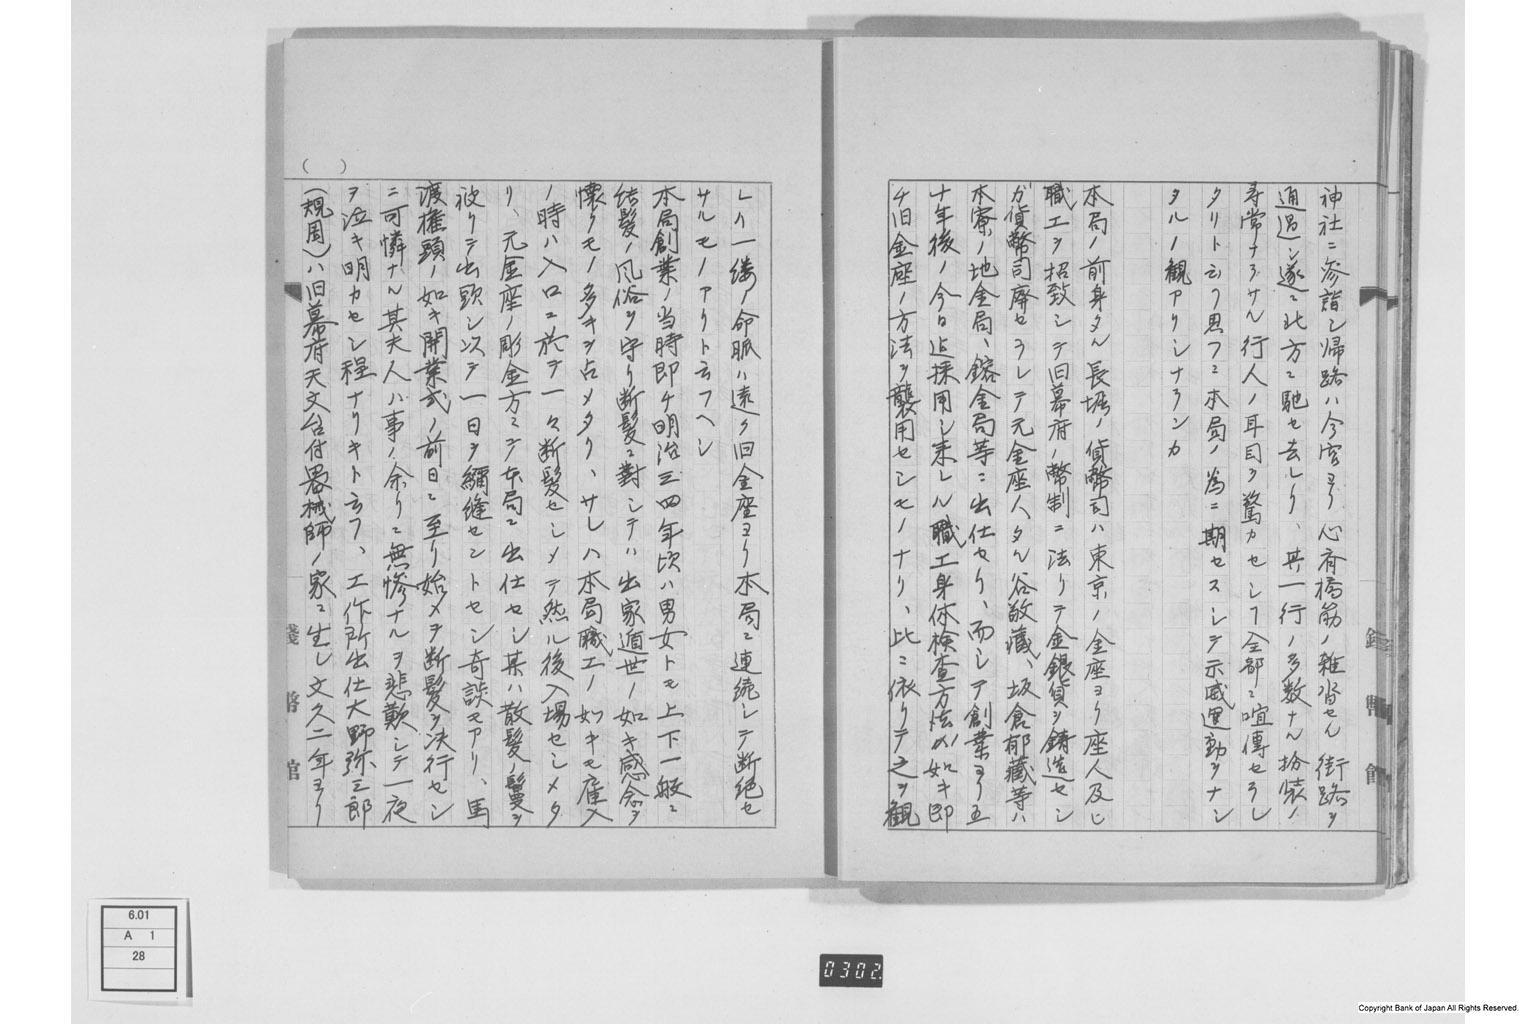 神社ニ参詣シ帰路ハ今宮ヨリ心斎橋筋ノ雑沓セル街路ヲ
通過シ遂ニ北方ニ馳セ去レリ、其一行ノ多数ナル扮装ノ
尋常ナラサル行人ノ耳目ヲ驚カセシヿ全部ニ喧傳セラレ
タリト云フ思フニ本局ノ為ニ期セスシテ示威運動ヲナシ
タルノ観アリシナランカ
本局ノ前身タル長堀ノ貨幣司ハ東京ノ金座ヨリ座人及ヒ
職工ヲ招致シテ旧幕府ノ幣制ニ法リテ金銀貨ヲ鋳造セシ
ガ貨幣司廃セラレテ元金座人タル谷敬蔵、坂倉郁蔵等ハ
本寮ノ地金局、鎔金局等ニ出仕セリ、而シテ創業ヨリ五
十年後ノ今日迄採用シ来レル職工身体検査方法ノ如キ即
チ旧金座ノ方法ヲ襲用セシモノナリ、此ニ依リテ之ヲ観
レハ一縷ノ命脈ハ遠ク旧金座ヨリ本局ニ連続シテ断絶セ
サルモノアリト云フヘシ
本局創業ノ当時即チ明治三四年頃ハ男女トモ上下一般ニ
結髪ノ風俗ヲ守リ断髪ニ對シテハ出家遁世ノ如キ感念ヲ
懐クモノ多キヲ占メタリ、サレハ本局職工ノ如キモ雇入
ノ時ハ入口ニ於テ一々断髪セシメテ然ル後入場セシメタ
リ、元金座ノ彫金方ニテ本局ニ出仕セシ某ハ散髪ノ鬘ヲ
被リテ出頭シ以テ一日ヲ繃縫セントセシ奇談モアリ、馬
渡権頭ノ如キ開業式ノ前日ニ至リ始メテ断髪ヲ決行セシ
ニ可憐ナル其夫人ハ事ノ余リニ無惨ナルヲ悲歎シテ一夜
ヲ泣キ明カセシ程ナリキト云フ、工作所出仕大野弥三郎
（規周）ハ旧幕府天文台付器械師ノ家ニ生レ文久二年ヨリ
( )
銭幣館
銭幣館
6.01
A 1
28
0302.
Copyright Bank of Japan All Rights Reserved.